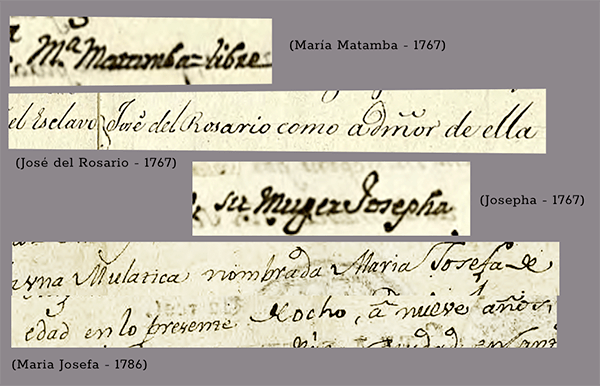 Mª Matamba libre
(María Matamba - 1767)
el Esclavo José del Rosario como admõr de ella
(José del Rosario - 1767)
su Muger Josepha
(Josepha - 1767)
una Mulatica nombrada Maria Josefa de
edad en lo presente de ocho, a nueve años,
(Maria Josefa - 1786)